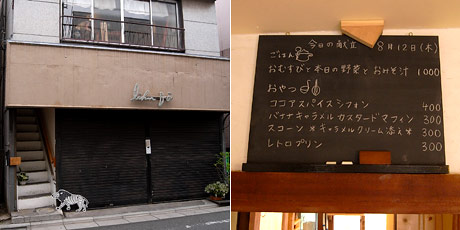 今日の献立 8月12日(木)
ごはん
おむすびと本日の野菜とおみそ汁 1000
おやつ
ココアスパイスシフォン 400
バナナキャラメルカスタードマフィン 300
スコーン *キャラメルクリーム添え* 300
レトロプリン 300